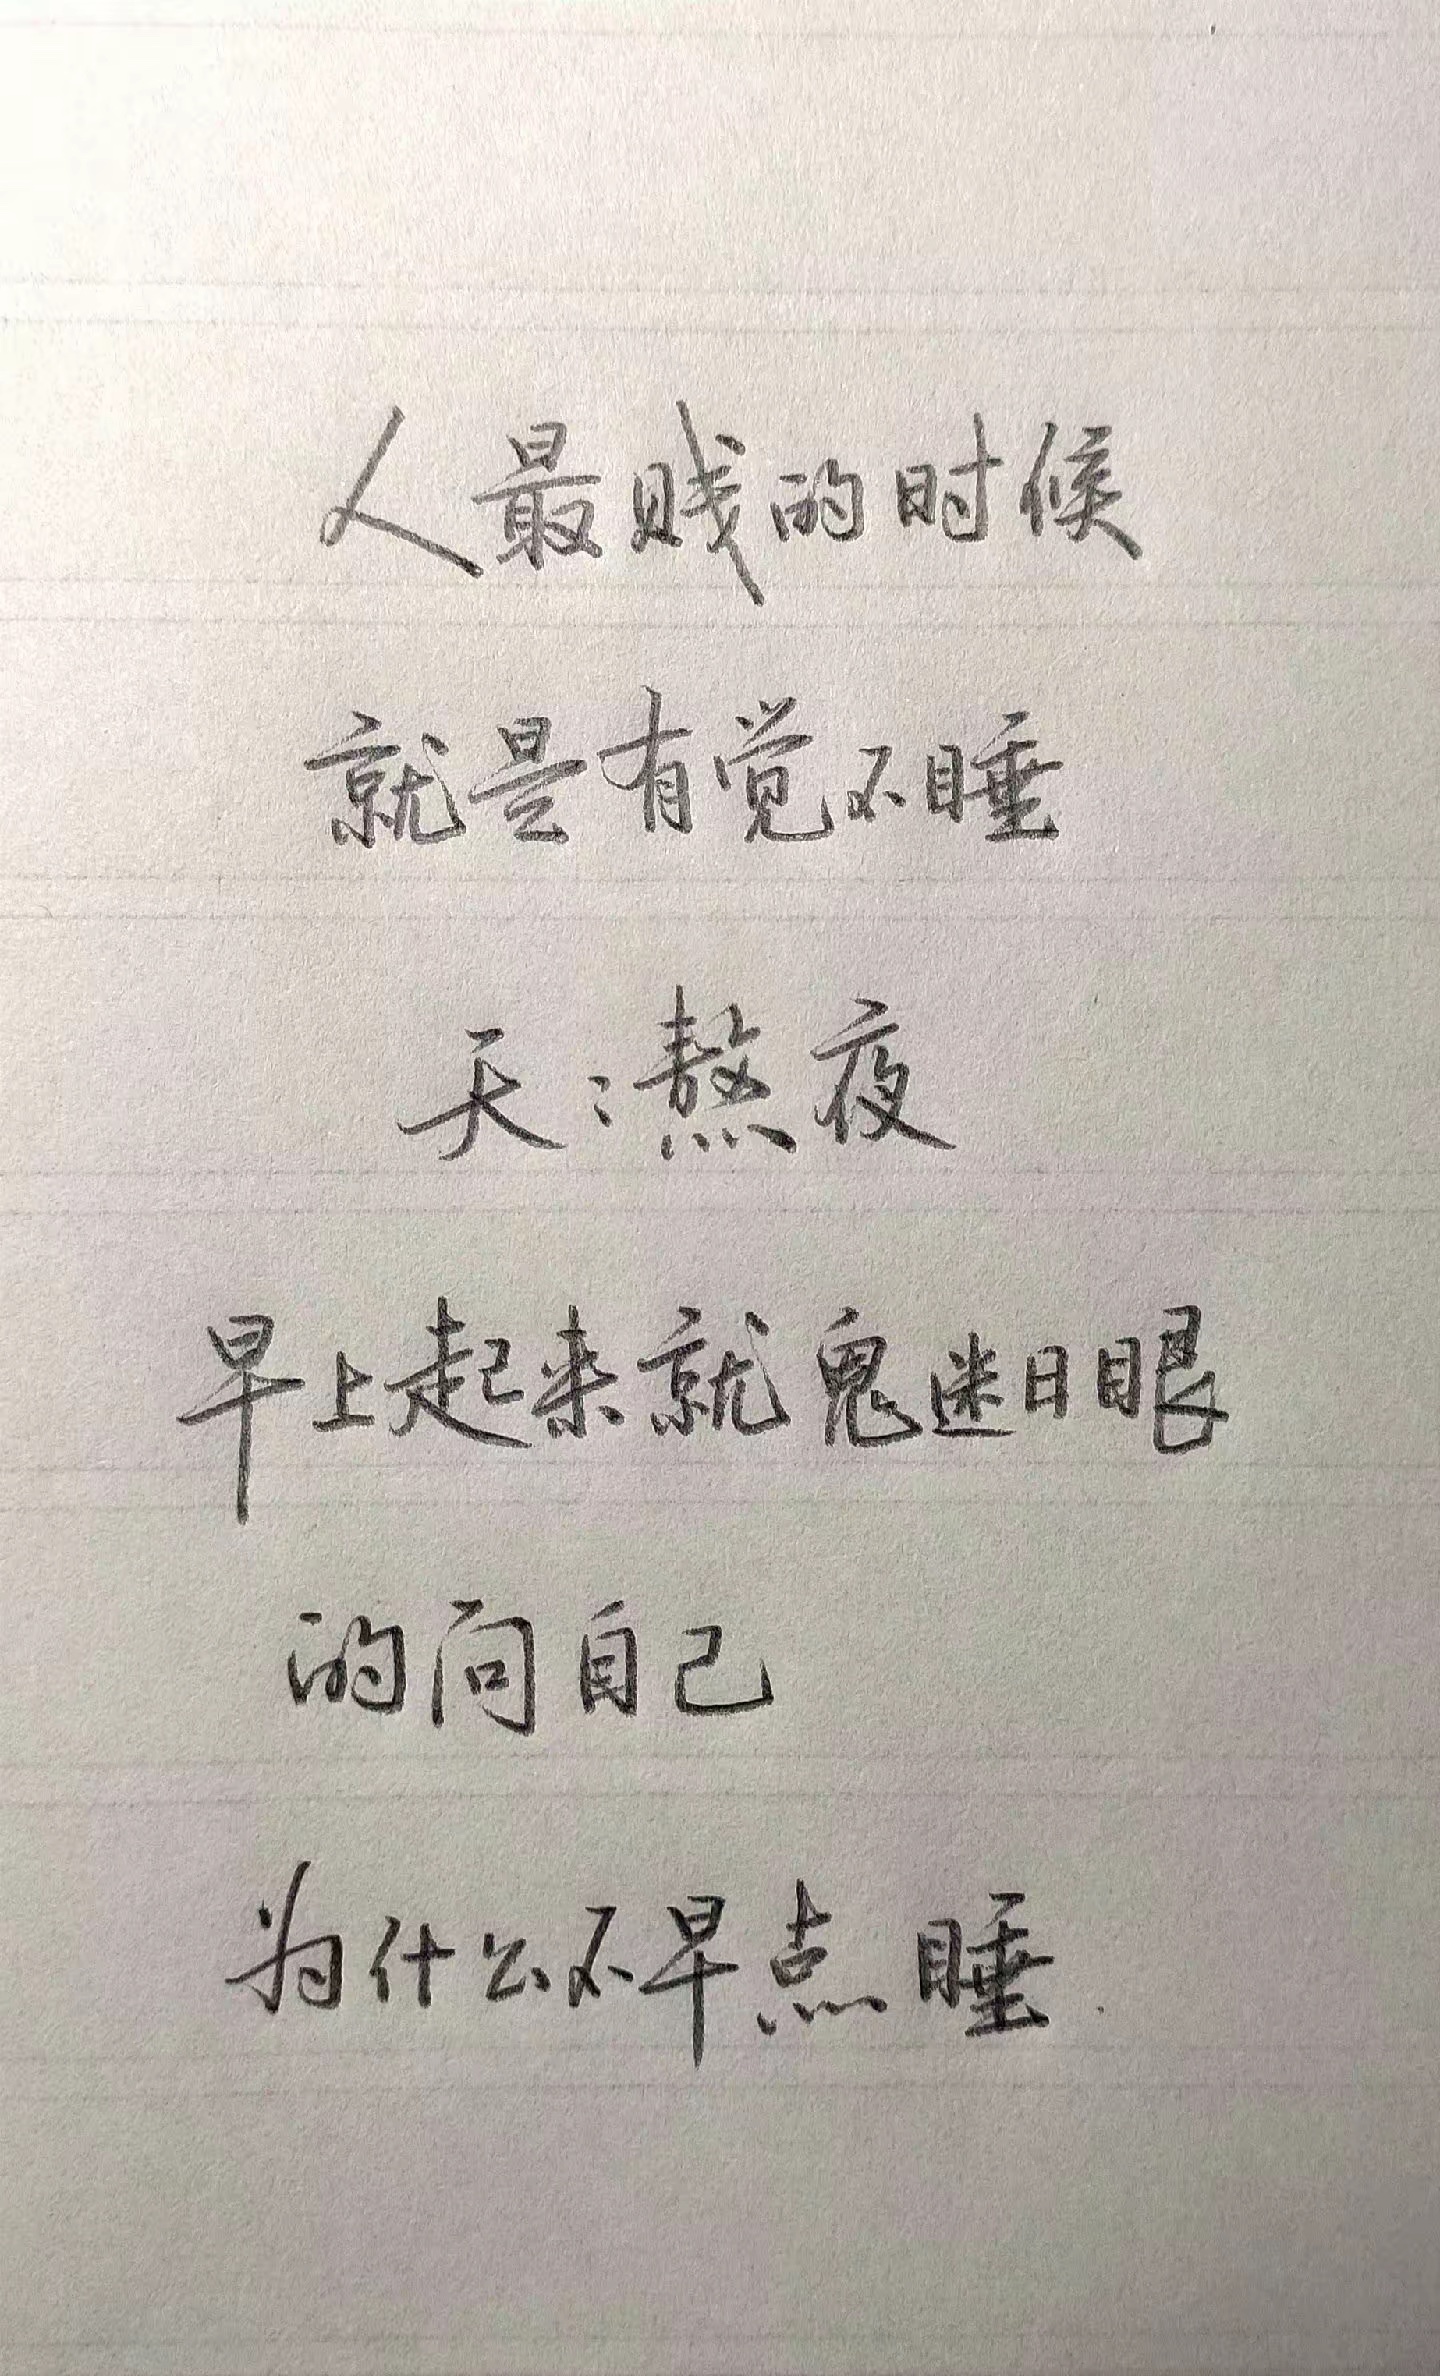 人最贱的时候
就是有觉不睡
天:熬夜
早上起来就鬼迷日眼
的问自己
为什么不早点睡.